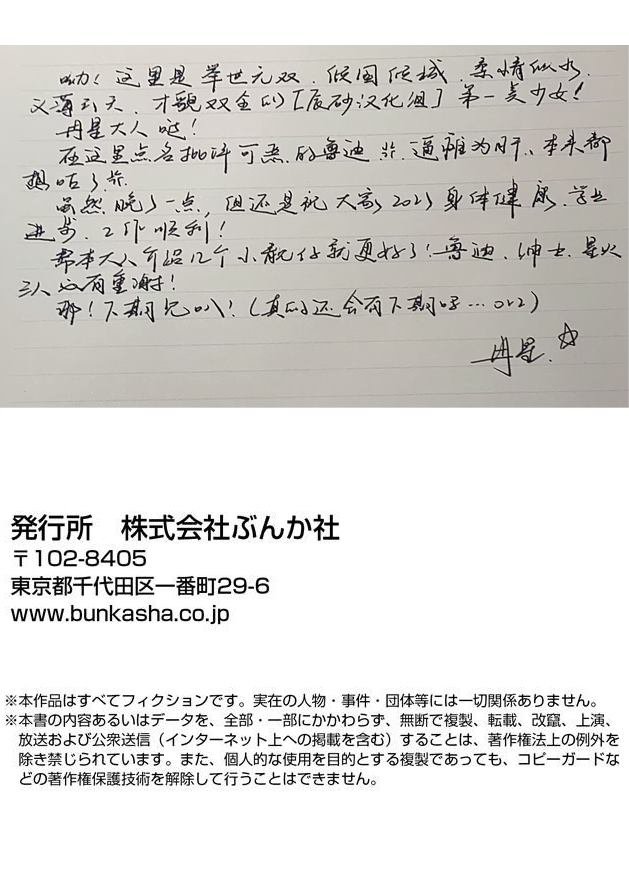 呦！这里是举世无双、倾国倾城、柔情似水、
义薄云天、才貌双全的[辰砂汉化组]第一美少女！
丹星大人哒！
在这里点名批评可恶的鲁迪
想咕了
虽然晚了一点，但还是祝大家2023身体健康、学业
进步、工作顺利！
帮本大人介绍几个小靓仔就更好了！鲁迪、绅士、星火
三人必有重谢！
那！下期见叭！（真的还会有下期吗…orz）
丹星.☆
発行所 株式会社ぶんか社
〒102-8405
東京都千代田区一番町29-6
www.bunkasha.co.jp
※本作品はすべてフィクションです。実在の人物・事件・団体等には一切関係ありません。
※本書の内容あるいはデータを、全部・一部にかかわらず、無断で複製、転載、改竄、上演、
放送および公衆送信（インターネット上への掲載を含む）することは、著作権法上の例外を
除き禁じられています。また、個人的な使用を目的とする複製であっても、コピーガードな
どの著作権保護技術を解除して行うことはできません。